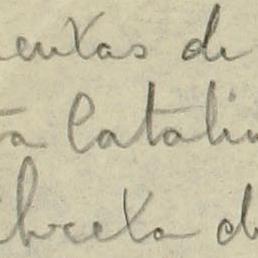 entas de
ta Catalin
ibreta d